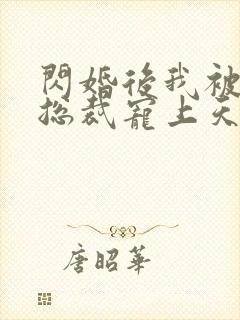 閃婚後我被
總裁寵上天
唐昭華